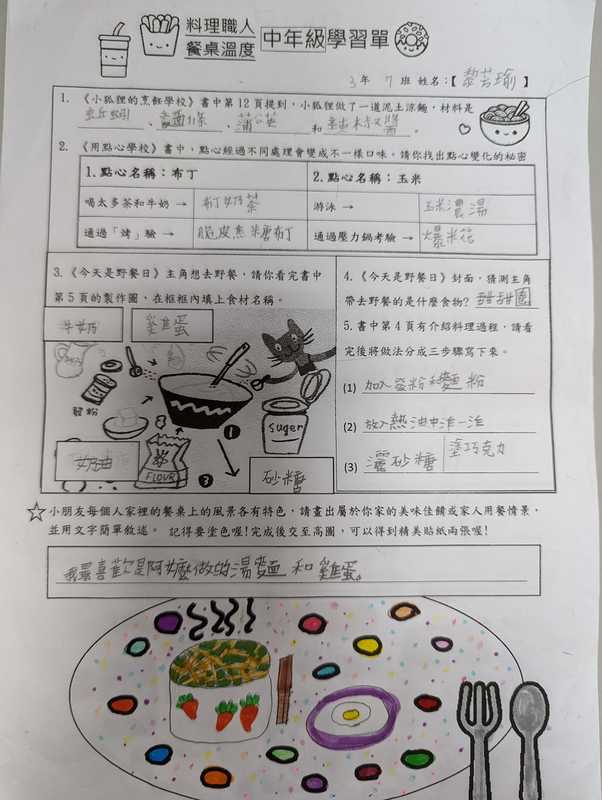 料理職人
餐桌溫度
中年級學習單
3年 7班 姓名:【黎芸瑜】
1. 《小狐狸的烹飪學校》書中第12頁提到,小狐狸做了一道泥土涼麵,材料是
蚯蚓、、蒲公英 和 醬。
2. 《用點心學校》書中,點心經過不同處理會變成不一樣口味。請你找出點心變化的秘密
1.點心名稱:布丁 2.點心名稱:玉米
喝太多茶和牛奶→ 布丁奶茶 游泳→ 玉米濃湯
通過「烤」驗→ 脆皮焦糖布丁 通過壓力鍋考驗→ 爆米花
3. 《今天是野餐日》主角想去野餐,請你看完書中
第5頁的製作圖,在框框內填上食材名稱。
牛奶 雞蛋
發粉
suger
奶油
FLOUR
砂糖
1
3
4. 《今天是野餐日》封面,猜測主角
帶去野餐的是什麼食物? 甜甜圈
5. 書中第4頁有介紹料理過程,請看
完後將做法分成三步驟寫下來。
(1) 加入發粉和麵粉
(2) 放入熱油中炸一炸
(3) 灑砂糖 塗巧克力
小朋友每個人家裡的餐桌上的風景各有特色,請畫出屬於你家的美味佳餚或家人用餐情景,
並用文字簡單敘述。 記得要塗色喔!完成後交至高圖,可以得到精美貼紙兩張喔!
我最喜歡是阿嬤做的湯麵和雞蛋。